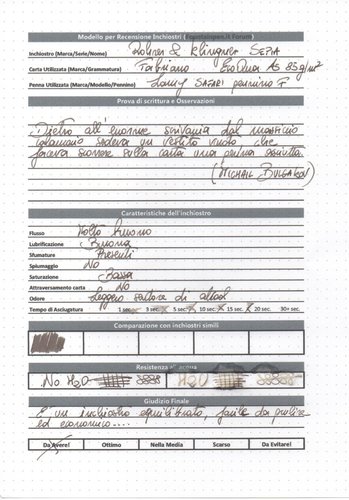 Modello per Recensione Inchiostri (Fountainpen.it Forum)
Inchiostro (Marca/Serie/Nome) Rohrer & Klingner SEPIA
Carta Utilizzata (Marca/Grammatura) Fabriano EcoQua A5 85 g/m²
Penna Utilizzata (Marca/Modello/Pennino) Lamy SAFARI pennino F
Prova di scrittura e Osservazioni
Dietro all'enorme scrivania dal massiccio
calamaio sedeva un vestito vuoto che
faceva scorrere sulla carta una penna asciutta.
(MICHAIL BULGAKOV)
Caratteristiche dell'inchiostro
Flusso Molto Buono
Lubrificazione Buona
Sfumature Presenti
Spiumaggio No
Saturazione Bassa
Attraversamento carta No
Odore Leggero sentore di alcool
Tempo di Asciugatura 1 sec 3 sec 5 sec 10 sec 15 sec 20 sec. 30+ sec.
Comparazione con inchiostri simili
Resistenza all'acqua
No H2O H2O
Giudizio Finale
E' un inchiostro equilibrato, facile da pulire
ed economico....
Da Avere! Ottimo Nella Media Scarso Da Evitare!